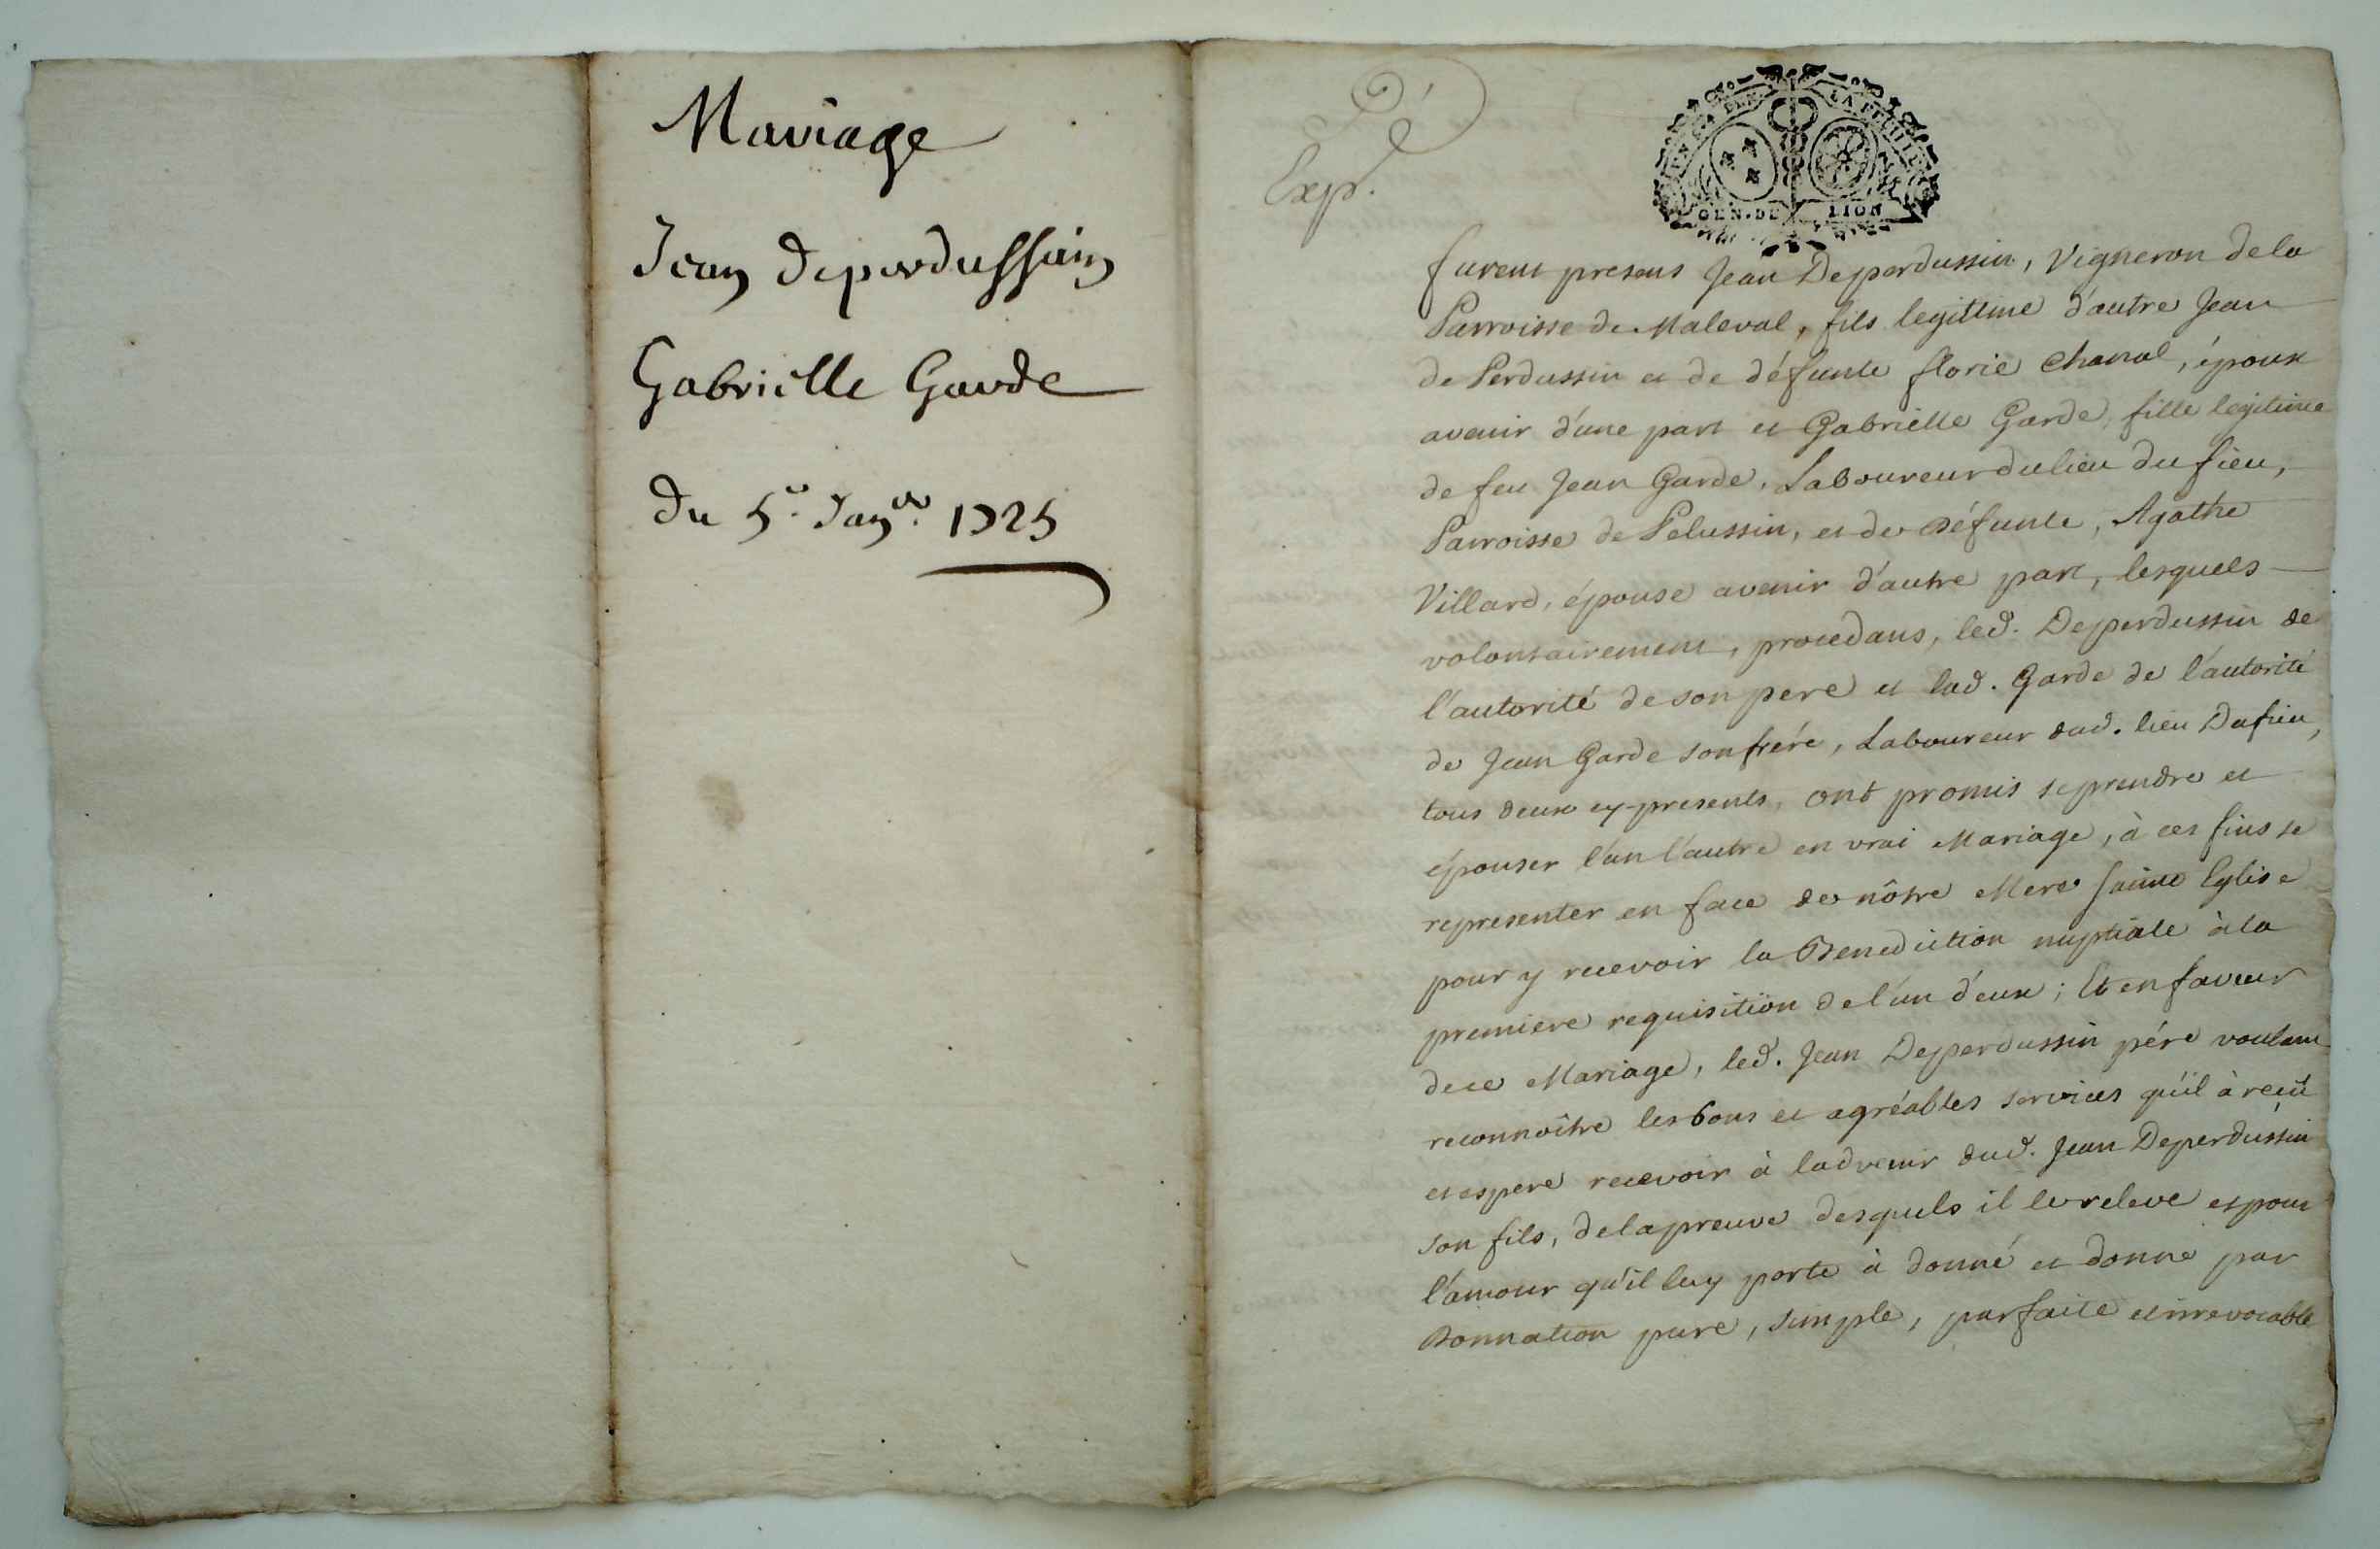 Mariage
Jean Deperdussain
Gabrielle Garde
Du 5.e Janv.er 1725
Exp.é
GEN. DE LION
furent presens Jean Deperdussin, Vigneron de la
Parroisse de Maleval, fils legitime d'autre Jean
de Perdussin et de défunte florie Chanal, époux
avenir d'une part et Gabrielle Garde, fille legitime
de feu Jean Garde, Laboureur du lieu du fieu,
Parroisse de Pelussin, et de défunte, Agathe
Villard, épouse avenir d'autre part, lesquels
volontairement, procedans, led. Deperdussin de
l'autorité de son pere et lad. Garde de l'autorité
de Jean Garde son frére, Laboureur dud. lieu Dufieu,
tous deux cy-presents, ont promis se prendre et
épouser l'un l'autre en vrai Mariage, à ces fins se
representer en face de nôtre Mere Sainte Eglise
pour y recevoir la Benediction nuptiale à la
premiere requisition de l'un d'eux; Et en faveur
de ce Mariage, led. Jean Deperdussin pére voulant
reconnoître les bons et agréables services qu'il à reçû
et espere recevoir à l'advenir dud. Jean Deperdussin
son fils, de la preuve desquels il le releve et pour
l'amour qu'il luy porte à donné et donne par
Donnation pure, simple, parfaite et irrevocable